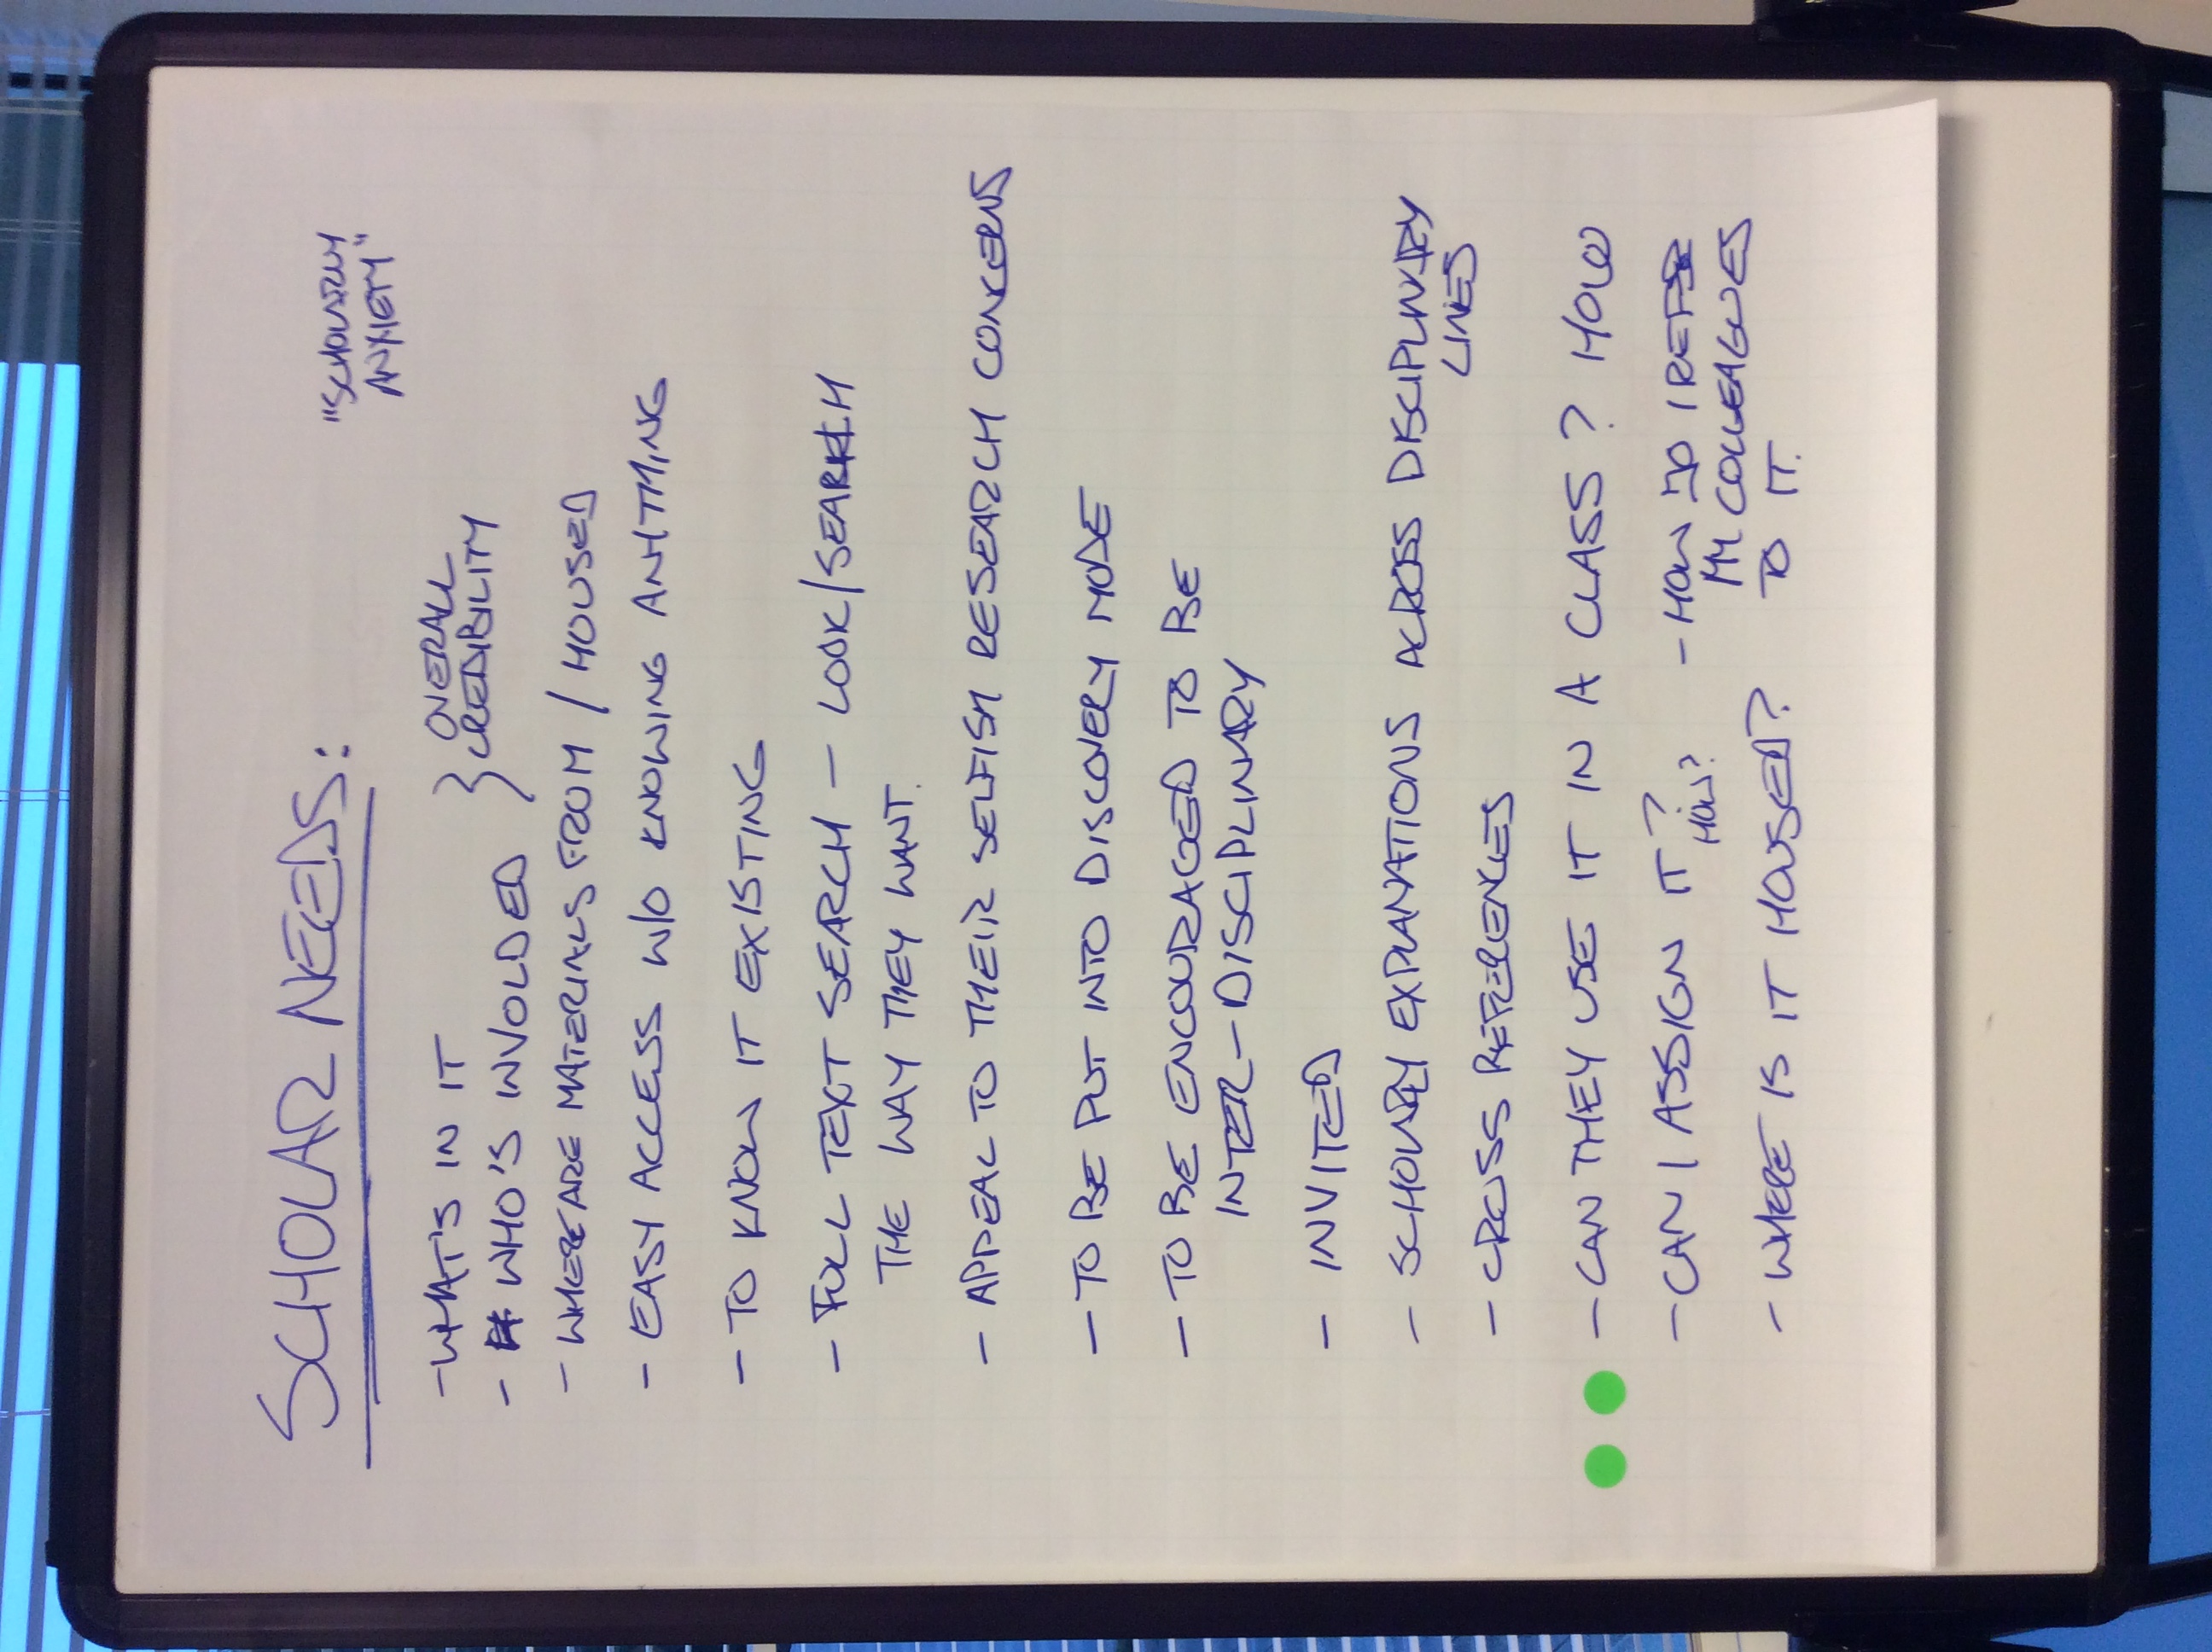 SCHOLAR NEEDS:
"SCHOLARLY
ANXIETY"
- WHAT'S IN IT
- WHO'S INVOLDED
} OVERALL
CREDIBILITY
- WHERE ARE MATERIALS FROM / HOUSED
- EASY ACCESS W/O KNOWING ANYTHING
- TO KNOW IT EXISTING
- FULL TEXT SEARCH - LOOK/SEARCH
THE WAY THEY WANT.
- APPEAL TO THEIR SELFISH RESEARCH CONCERNS
- TO BE PUT INTO DISCOVERY MODE
- TO BE ENCOURAGED TO BE
INTER-DISCIPLINARY
- INVITED
- SCHOLARLY EXPLANATIONS ACROSS DISCIPLINARY
LINES
- CROSS REFERENCES
- CAN THEY USE IT IN A CLASS? HOW
- CAN I ASSIGN IT?
HOW?
- WHERE IS IT HOUSED?
- HOW DO I REFER
MY COLLEAGUES
TO IT.